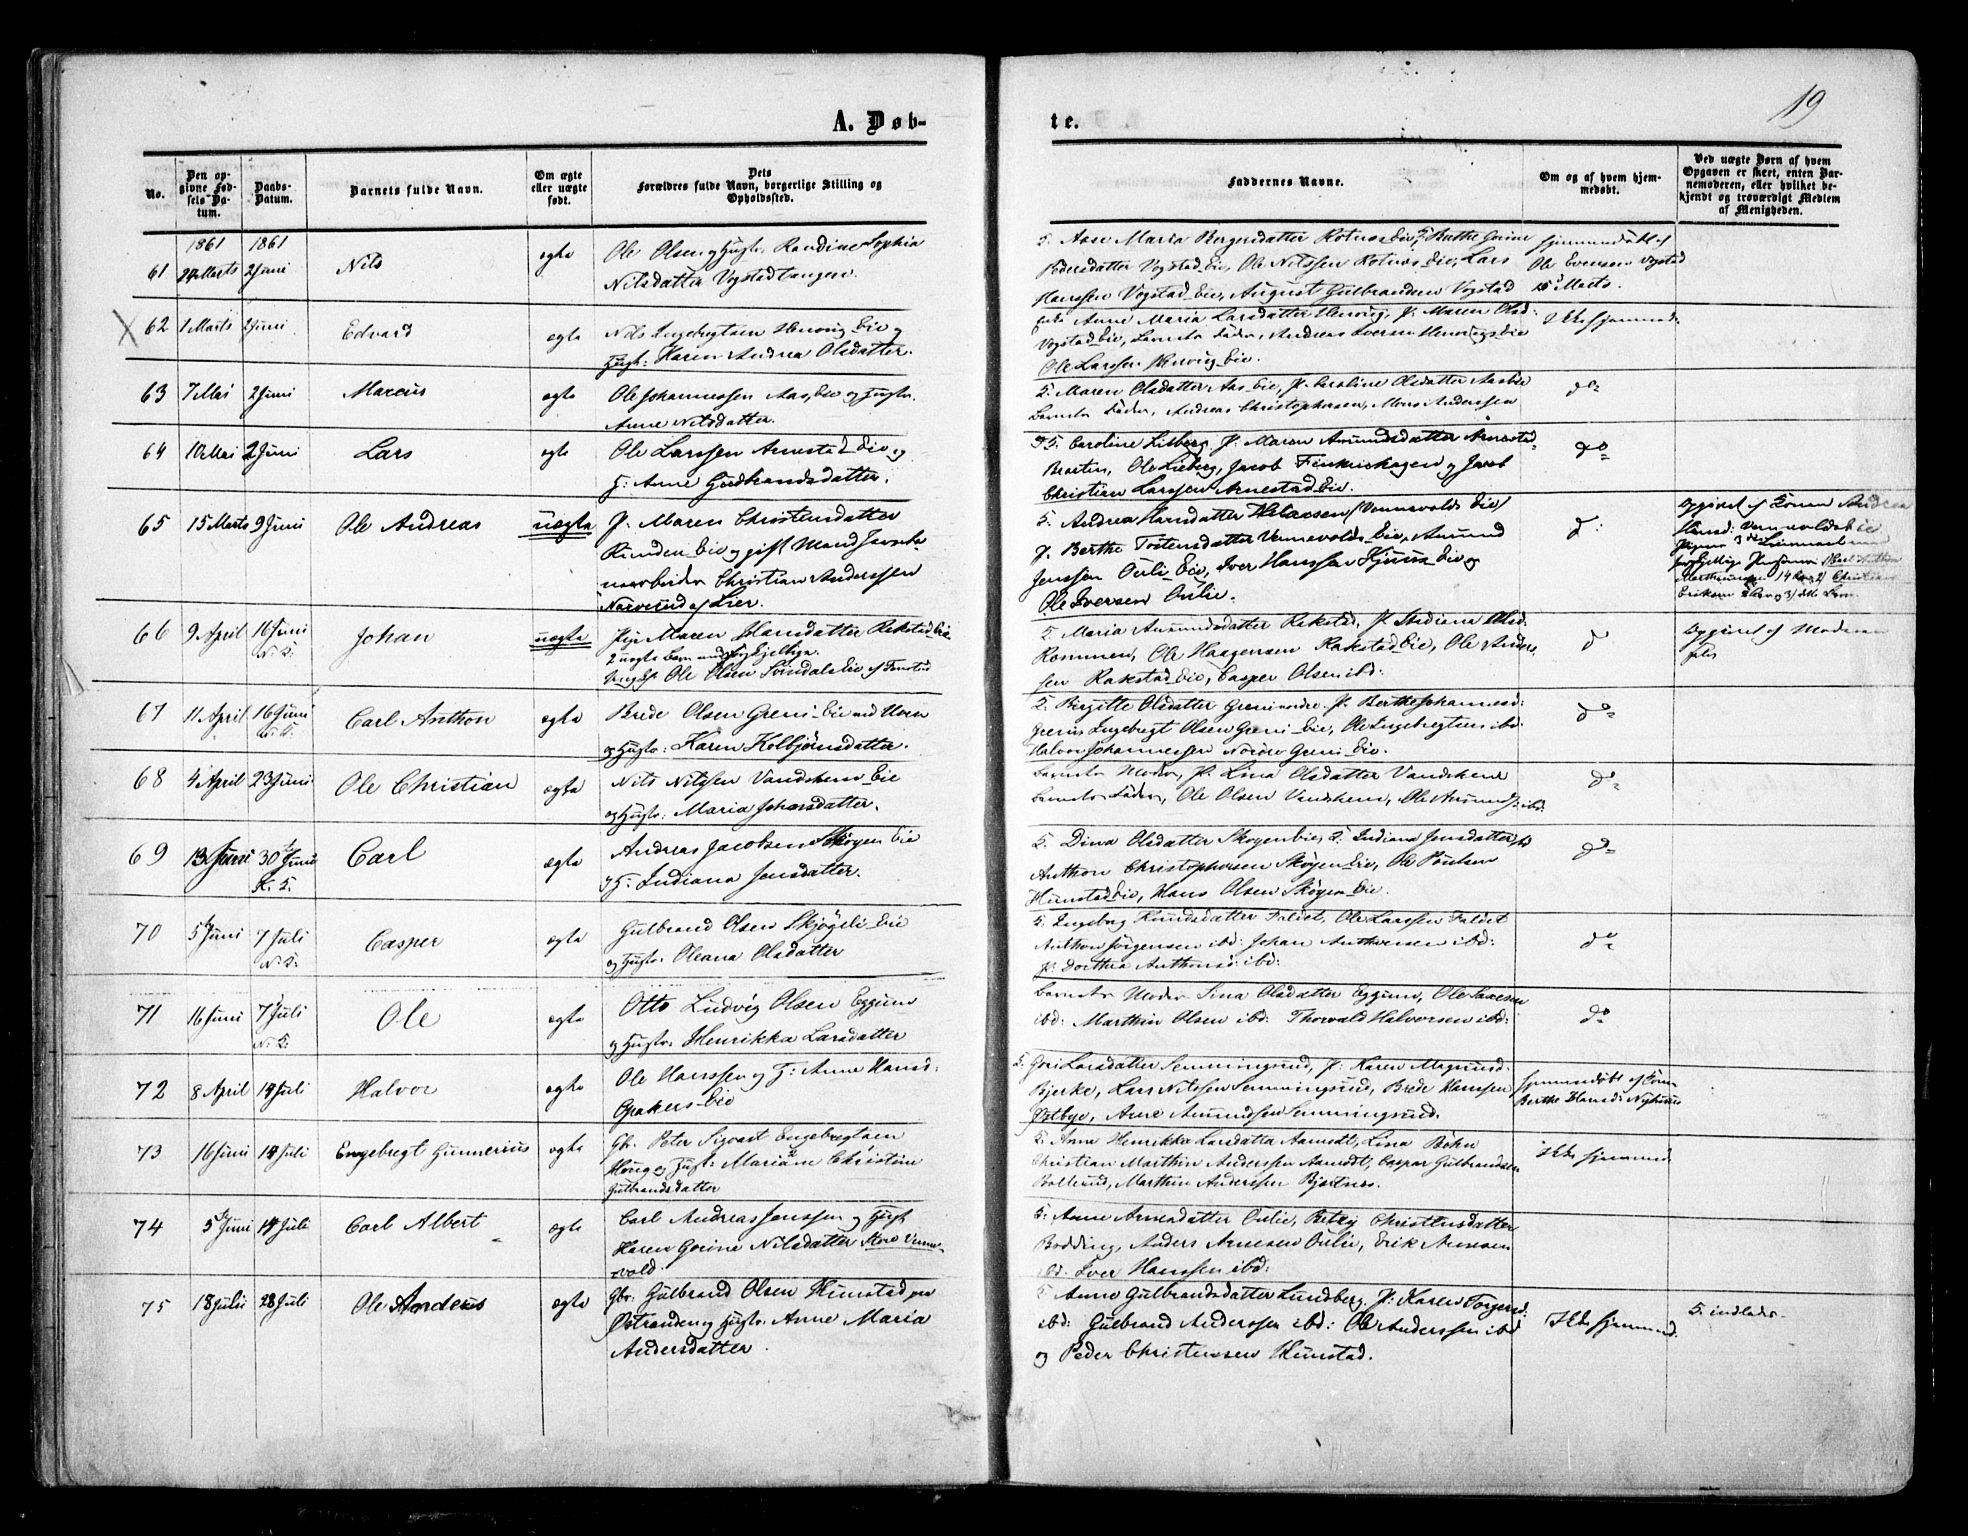 19
A. Døb-
te.
No.
Den op-
givne Fød-
sels Da-
tum.
Daabs-
Datum.
Barnets fulde Navn.
Om ægte
eller uægte
født.
Dets
Forældres fulde Navn, borgerlige Stilling og
Opholdssted.
Faddernes Navne.
Om og af hvem hjem-
medøbt.
Ved uægte Børn af hvem
Opgaven er skeet, enten Bar-
nemoderen, eller hvilket be-
kjendt og troværdigt Medlem
af Menigheden.
1861 1861
61 24 Marts 2 Juni Nils ægte
Ole Olsen og Hustr. Randine Sophia
Nilsdatter Vogstadtangen.
Maria Bergersdatter Rotnes Eie, Berthe Gorine
Pedersdatter Vogstad Eie, Ole Nilssen Rotnes Eie, Lars
Hanssen Vogstad Eie, August Gulbrandsen Vogstad
hjemmedøbt af
Ole Evensen Vogstad
15 Marts.
62 1 Marts 2 Juni Edvard ægte
Nils Ingebregtsen Eie og
Hust: Karen Andrea Olsdatter.
Anne Maria Larsdatter P. Maren Olsd:
Vogstad Eie, Barnets Fader, Andreas Iversen
Ole Larssen Eie.
Ikke hjemmed:
63 7 Mai 2 Juni Marcus ægte
Ole Johannessen Aas Eie og Hustr.
Anne Nilsdatter.
G. Maren Olsdatter Aas Eie, P. Caroline Olsdatter Aas Eie
Barnets Fader, Andreas Christophersen, Mons Anderssen
do
64 10 Mai 2 Juni Lars ægte
Ole Larssen Arnestad Eie og
H: Anne Gudbrandsdatter.
G. Caroline Lieberg, P. Maren Amundsdatter Arnestad
Braaten, Ole Lieberg, Jacob Finkenhagen og Jacob
Christian Larssen Arnestad Eie.
do
65 15 Marts 9 Juni Ole Andreas uægte
P. Maren Christensdatter
Rinden Eie og gift Mand Jernba-
nearbeider Christian Anderssen
af Lier.
G. Andrea Hansdatter (Vennevolds Eie)
P. Berthe Tostensdatter Vennevolds Eie, Amund
Jenssen Oulie Eie, Iver Hanssen Eie og
Ole Iversen Oulie.
d:
Opgivet af Andrea
Hansd: Vennevolds Eie
66 9 April 16 Juni N. K: Johan uægte
Pige Maren Hansdatter Rakstad Eie
2 uægte Barn med
Ole Olsen Sørsdals Eie af
G. Maria Amundsdatter Rakstad, P. Olsd.
Rommen, Ole Haagensen Rakstad Eie, Ole Ander-
sen Rakstad Eie, Casper Olsen ibd:
d
Opgivet af Moderen
selv
67 11 April 16 Juni Carl Anthon ægte
Brede Olsen Greni Eie
og Hustr: Karen Kolbjørnsdatter.
G. Birgitte Olsdatter Greni nordre. P. Berthe Johannesd:
Ingebregt Olsen Greni Eie, Ole Ingebregtsen ibd:
Halvor Johannessen Nordre Greni Eie.
do
68 4 April 23 Juni Ole Christian ægte
Nils Nilsen Vandshem Eie
og Hustr: Maria Johansdatter.
Barnets Moder, P. Lina Olsdatter Vandshem
Barnets Fader, Ole Olsen Vandshem, Ole Amunds. ibd:
do
69 13 Juni 30 Juni Carl ægte
Andreas Jacobsen Skøyen Eie
H: Indiana Jensdatter.
G. Dina Olsdatter Skøyen Eie, G. Indiana Jensdatter
Anthon Christophersen Skøyen Eie, Ole Poulsen
Hunstad Eie, Hans Olsen Skøyen Eie.
do
70 5 Juni 7 Juli N. K: Casper ægte
Gulbrand Olsen Skjøgeli Eie
og Hustr. Oleana Olsdatter
G. Ingeborg Knudsdatter Faldet, Ole Larssen Faldet
Anthon Jørgensen ibd: Johan Anthonsen ibd:
P. Dorthea Anthonsd: ibd:
do
71 16 Juni 7 Juli N. K: Ole ægte
Otto Ludvig Olsen Eggum
og Hustr. Henrikka Larsdatter
Barnets Moder Sina Olsdatter Eggum, Ole Larssen
ibd: Marthin Olsen ibd: Thorvald Halvorsen ibd:
do
72 8 April 14 Juli Halvor ægte
Ole Hanssen og H: Anne Hansd:
Gjakers Eie
G. Gori Larsdatter Semmingsrud, P. Karen Magnusd.
Bjerke, Lars Nilssen Semmingsrud, Brede Hanssen
Østbye, Arne Amundsen Semmingsrud.
hjemmedøbt af
Berthe Hansd: Nyhuus
73 16 Juni 14 Juli Engebregt Gunnerius ægte
Gbr. Peter Sigvart Engebregtsen
Hong og Hust: Mariane Christine
Gulbrandsdatter
G. Anne Henrikka Larsdatter Aamodt, Lina Bøhn
Christian Marthin Anderssen Aamodt, Caspar Gulbrandsen
Bollerud, Marthin Anderssen Bjertnes.
Ikke hjemmed.
74 5 Juni 14 Juli Carl Albert ægte
Carl Andreas Jenssen og Hust
Karen Gorine Nilsdatter Venne-
vold.
G. Anne Arnesdatter Oulie, Betzy Christensdatter
Bodding, Anders Arnesen Oulie, Erik Arnesen
ibd. Iver Hanssen ibd:
75 18 Juli 28 Juli Ole Andeus ægte
Gbr. Gulbrand Olsen Hunstad
Østranden og Hustr. Anne Maria
Andersdatter.
G Anne Gulbrandsdatter Lundberg, P. Karen Torgersd:
ibd: Gulbrand Anderssen ibd: Ole Anderssen ibd
og Peder Christenssen Hunstad.
Ikke hjemmed.
G. indladt.